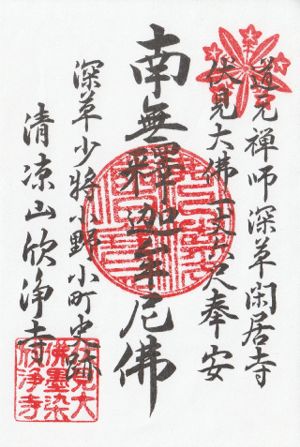 道元禅師深草閑居寺
伏見大佛丈六尺奉安
南無釋迦牟尼佛
深草少将小野小町史跡
清涼山欣浄寺
伏見大
佛墨染
欣浄寺